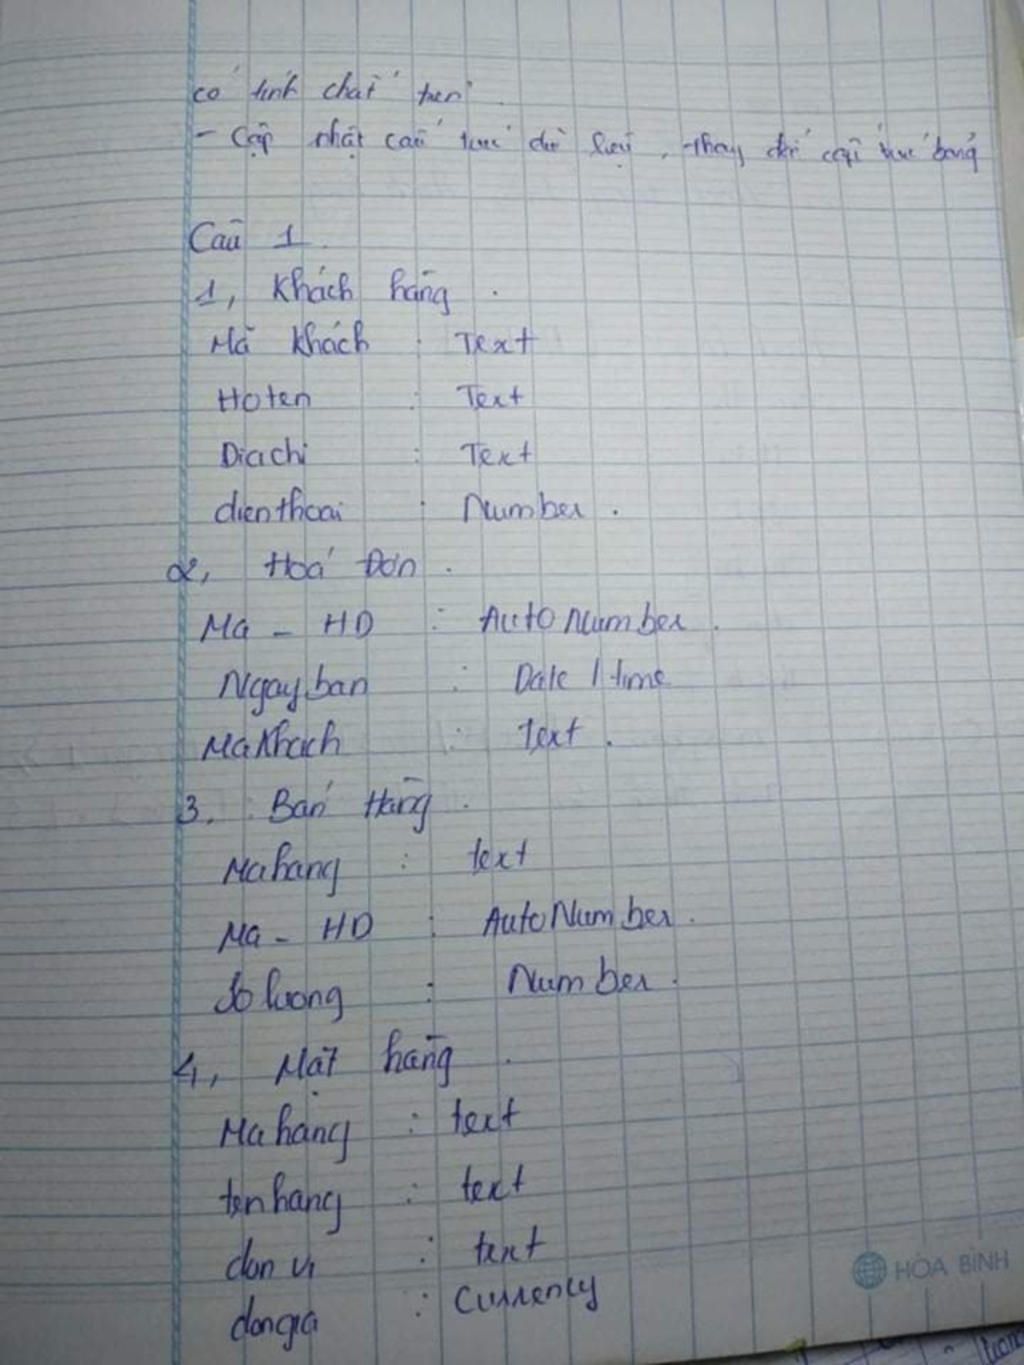 có tính chất trên
- Cập nhật cấu trúc dữ liệu, thay đổi cấu trúc bảng
Câu 1.
1, Khách hàng.
Mã khách : Text
Hoten : Text
Diachi : Text
dienthoai : Number.
2, Hoá Đơn.
Ma - HD : AutoNumber.
Ngayban : Date / time
MaKhach : text.
3. Bán Hàng.
Mahang : text
Ma - HD : AutoNumber.
So luong : Number.
4, Mặt hàng.
Ma hang : text
ten hang : text
don vi : text
dongia : Currency
HÒA BÌNH